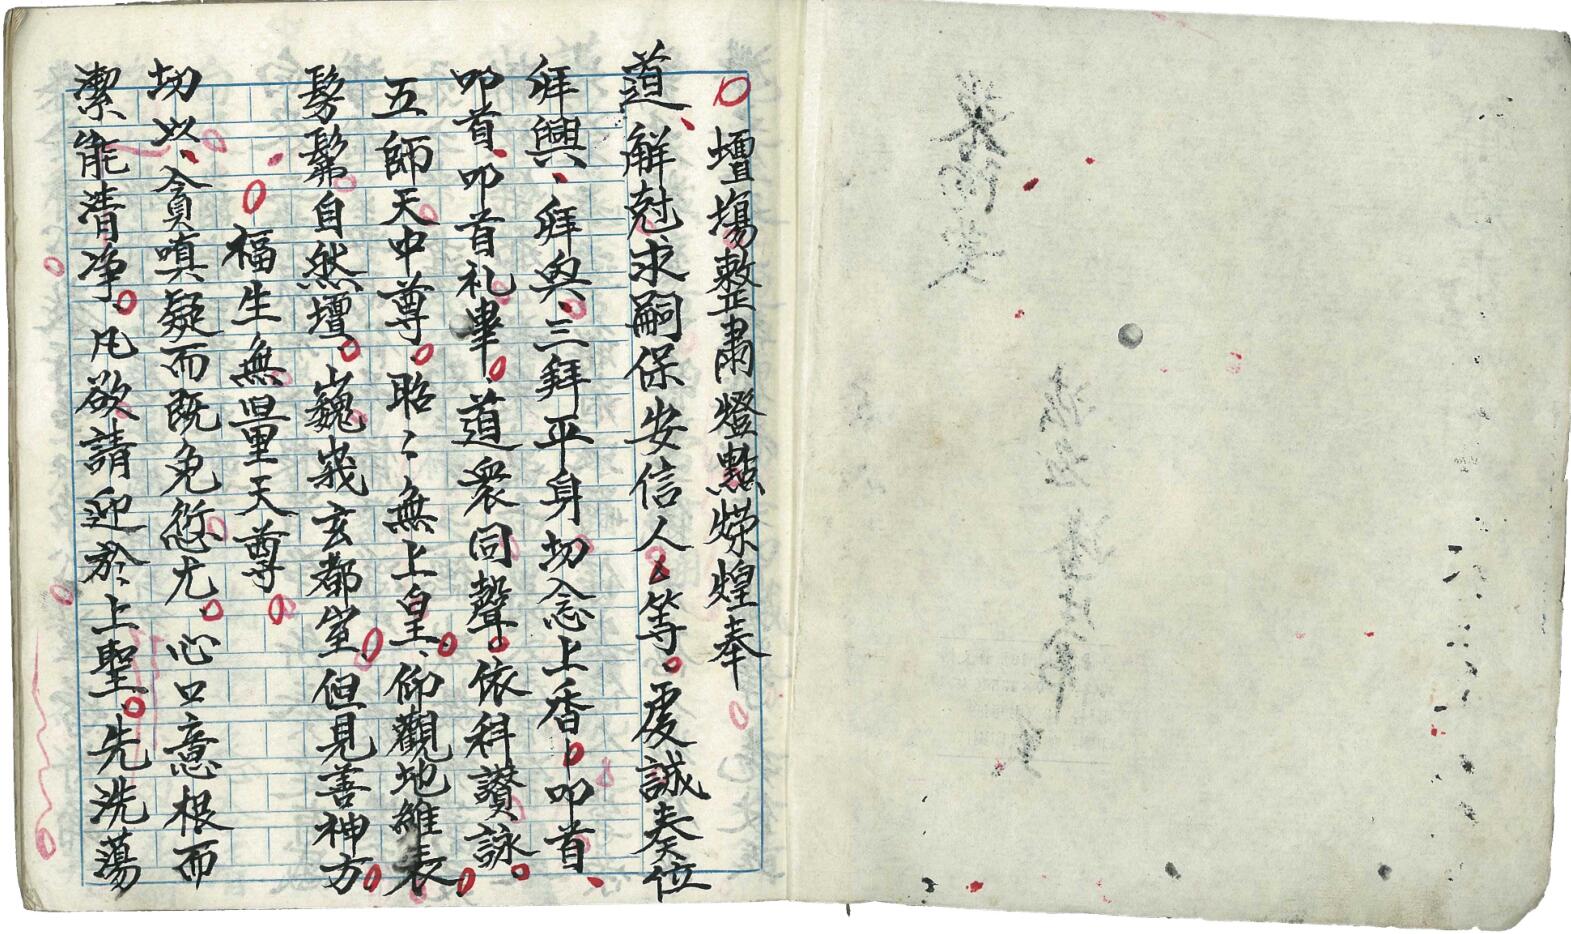 壇塲整肅燈點熒煌奉
道、解尅求嗣保安信人厶等。虔誠奏位
拜興、拜興、三拜平身切念上香、叩首、
叩首、叩首礼畢。道衆同聲。依科讚詠。
五師天中尊。昭〻無上皇、仰觀地維表。
髣髴自然壇。巍峩玄都室。但見善神方。
福生無量天尊
切以、貪嗔疑而既免愆尤。心口意根而
潔能清净。凡欲請迎於、上聖。先洗蕩